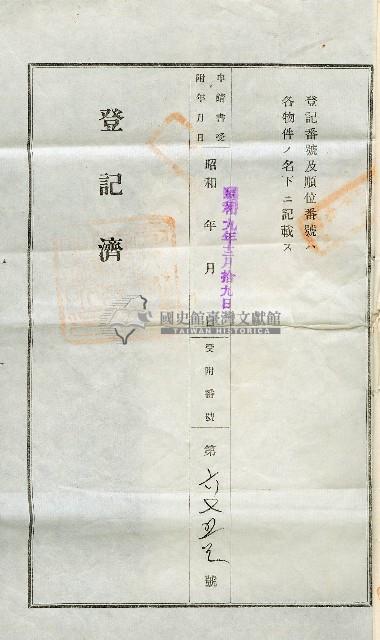 登記番號及順位番號ハ
各物件ノ名下ニ記載ス
申請書受附年月日
昭和 年 月 日
昭和九年三月拾九日
受附番號
第 號
登記濟
國史館臺灣文獻館
TAIWAN HISTORICA